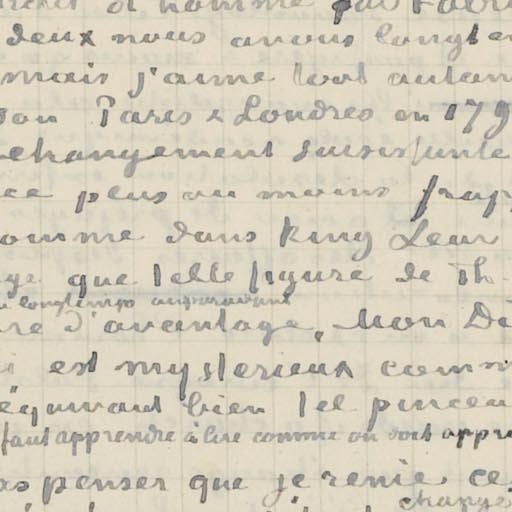 deux nous avons longte
mais j'aime tout autan
son Paris & Londres en 179
changement suivis
ce plus ou moins frap
omme dans King Lear
que telle figure de Th
longtemps auparavant
re d'avantage, Mon Di
est mysterieux comm
équivaut bien tel pinceau
faut apprendre à lire comme on doit appre
as penser que je renie ce
change